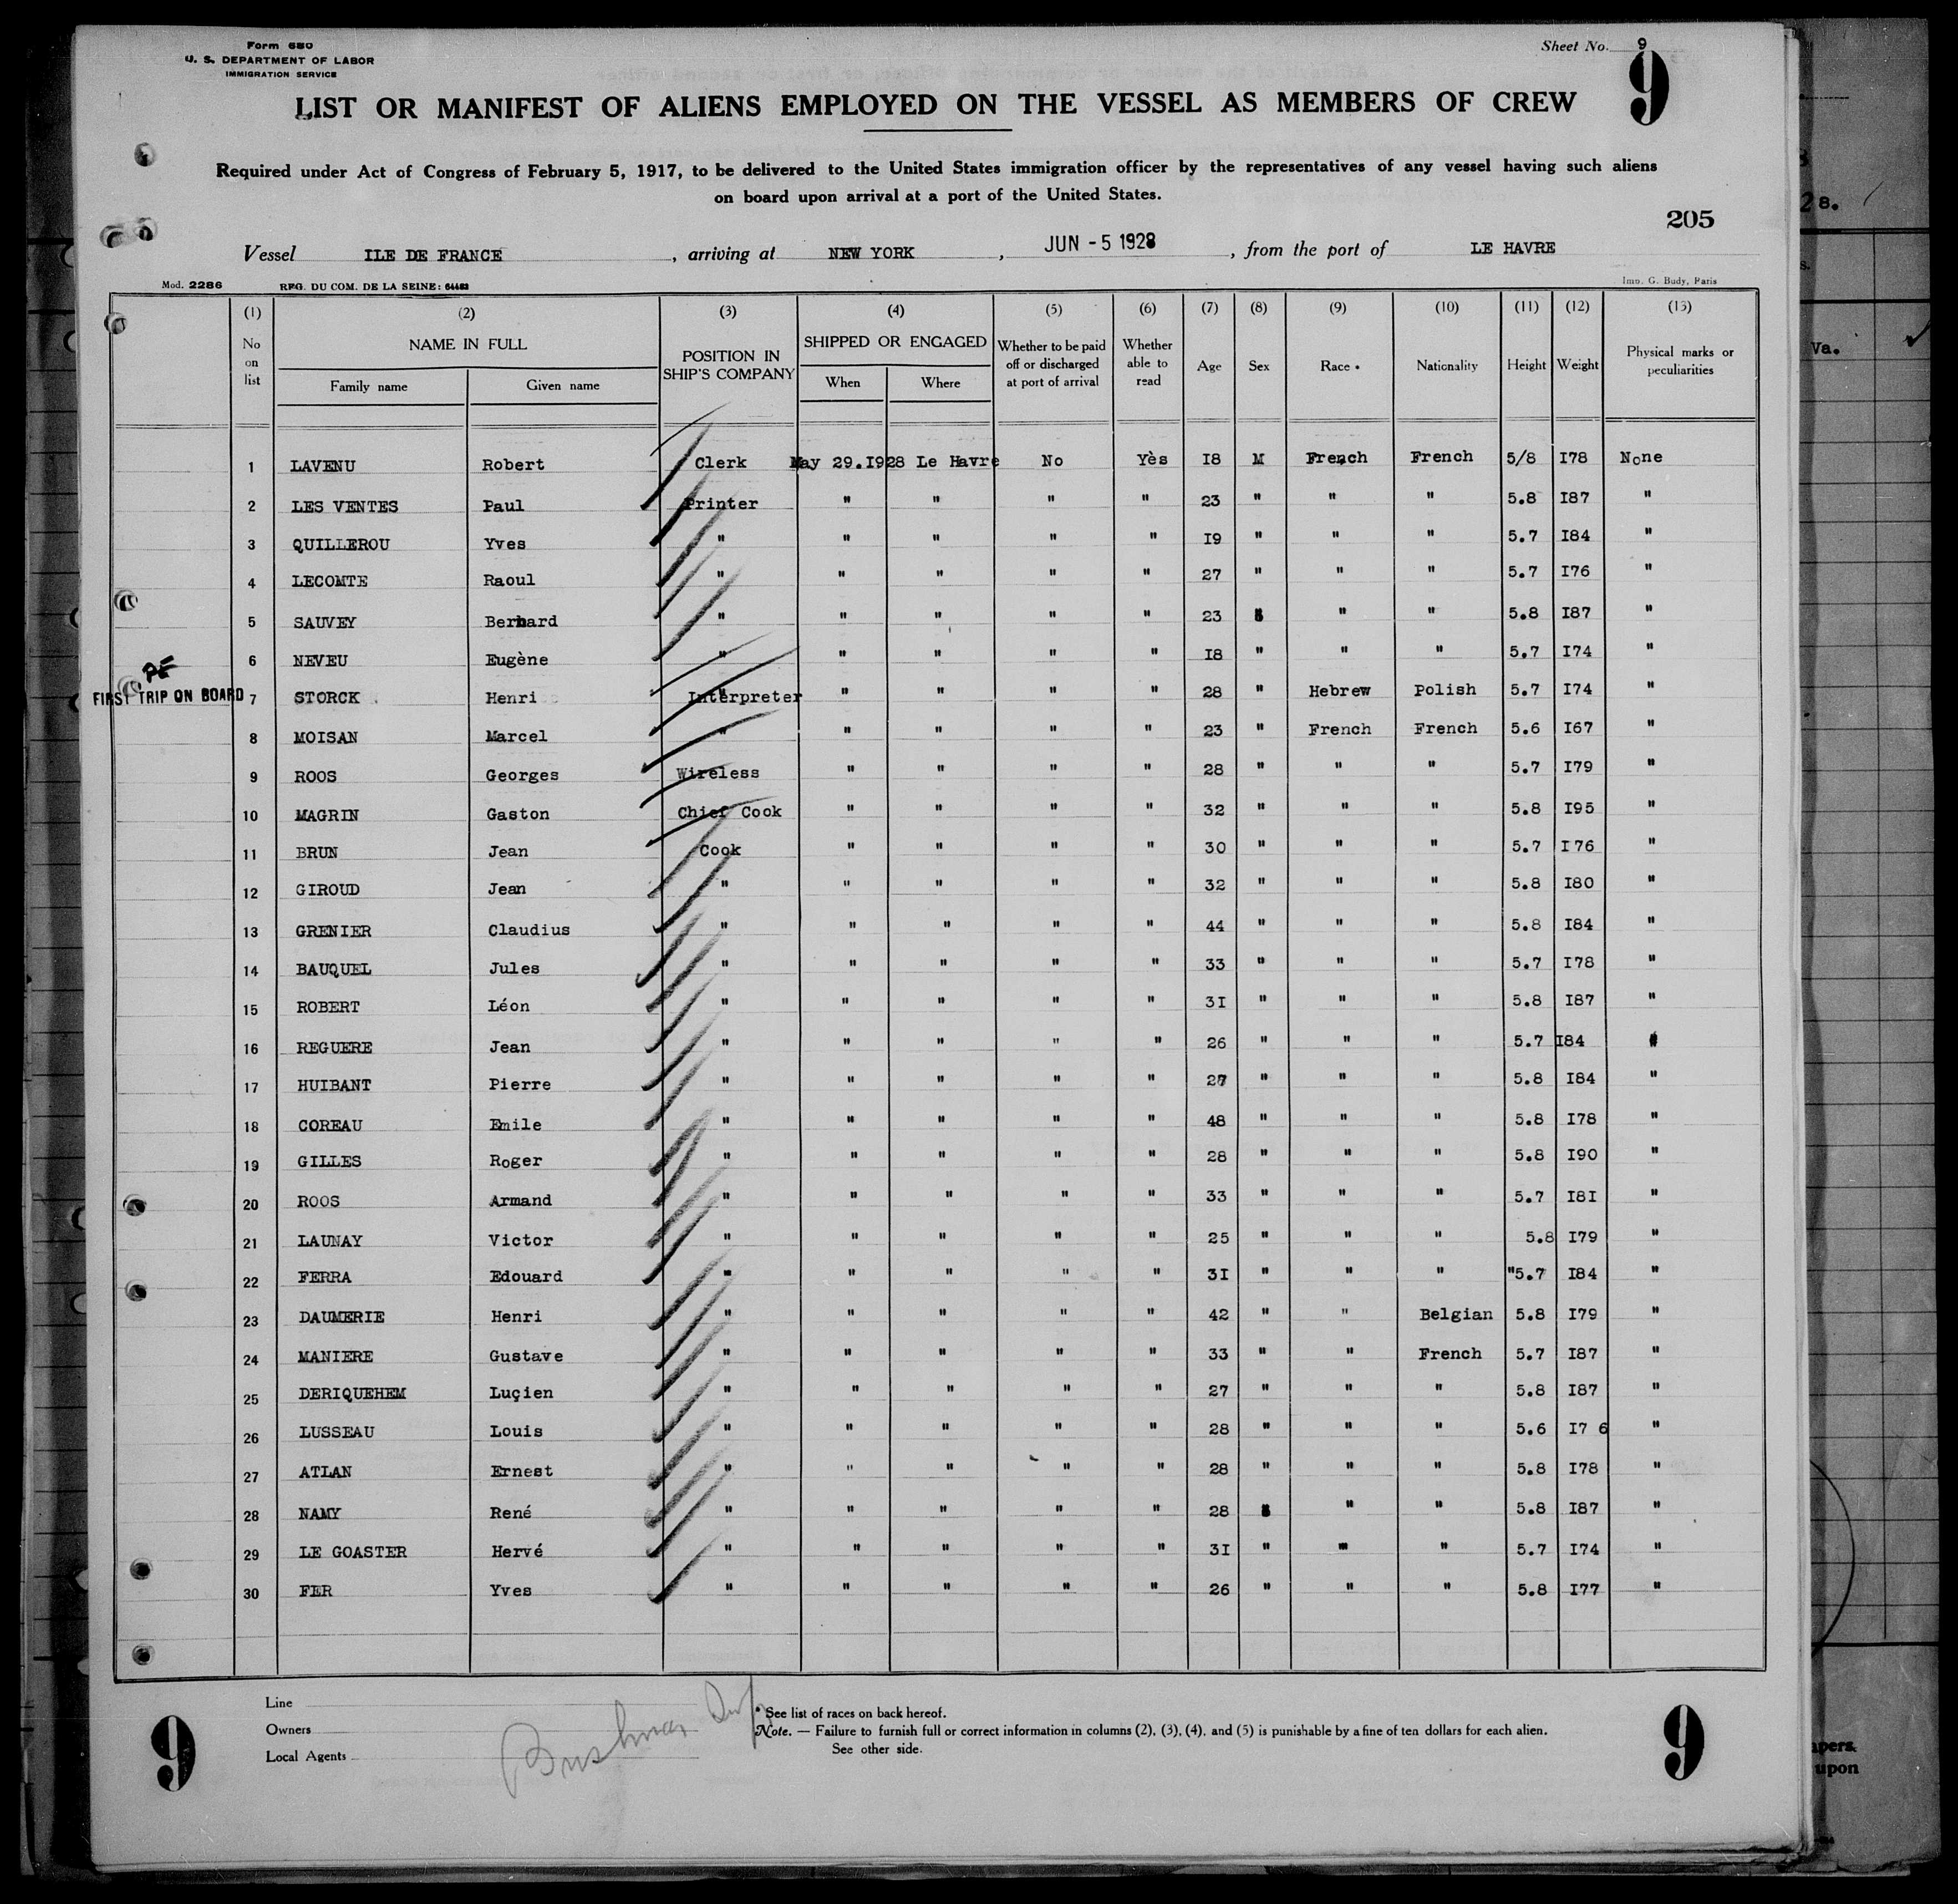 Form 680
U. S. DEPARTMENT OF LABOR
IMMIGRATION SERVICE
Sheet No. 9
9
LIST OR MANIFEST OF ALIENS EMPLOYED ON THE VESSEL AS MEMBERS OF CREW
Required under Act of Congress of February 5, 1917, to be delivered to the United States immigration officer by the representatives of any vessel having such aliens
on board upon arrival at a port of the United States.
205
Vessel ILE DE FRANCE , arriving at NEW YORK , JUN - 5 1928 , from the port of LE HAVRE
Mod. 2286 REG. DU COM. DE LA SEINE: 64482 Imp. G. Budy, Paris
(1) (2) (3) (4) (5) (6) (7) (8) (9) (10) (11) (12) (13)
No on list NAME IN FULL Family name Given name POSITION IN SHIP'S COMPANY SHIPPED OR ENGAGED When Where Whether to be paid off or discharged at port of arrival Whether able to read Age Sex Race * Nationality Height Weight Physical marks or peculiarities
1 LAVENU Robert Clerk May 29.I928 Le Havre No Yès I8 M French French 5/8 I78 None
2 LES VENTES Paul Printer " " " " 23 " " " 5.8 I87 "
3 QUILLEROU Yves " " " " " I9 " " " 5.7 I84 "
4 LECOMTE Raoul " " " " " 27 " " " 5.7 I76 "
5 SAUVEY Bernard " " " " " 23 " " 5.8 I87 "
6 NEVEU Eugène " " " " " I8 " " " 5.7 I74 "
PE
FIRST TRIP ON BOARD 7 STORCK Henri Interpreter " " " " 28 " Hebrew Polish 5.7 I74 "
8 MOISAN Marcel " " " " " 23 " French French 5.6 I67 "
9 ROOS Georges Wireless " " " " 28 " " " 5.7 I79 "
10 MAGRIN Gaston Chief Cook " " " " 32 " " " 5.8 I95 "
11 BRUN Jean Cook " " " " 30 " " " 5.7 I76 "
12 GIROUD Jean " " " " " 32 " " " 5.8 I80 "
13 GRENIER Claudius " " " " " 44 " " " 5.8 I84 "
14 BAUQUEL Jules " " " " " 33 " " " 5.7 I78 "
15 ROBERT Léon " " " " " 3I " " " 5.8 I87 "
16 REGUERE Jean " " " " " 26 " " " 5.7 I84
17 HUIBANT Pierre " " " " " 27 " " " 5.8 I84 "
18 COREAU Emile " " " " " 48 " " " 5.8 I78 "
19 GILLES Roger " " " " " 28 " " " 5.8 I90 "
20 ROOS Armand " " " " " 33 " " " 5.7 I8I "
21 LAUNAY Victor " " " " " 25 " " " 5.8 I79 "
22 FERRA Edouard " " " " " 3I " " " "5.7 I84 "
23 DAUMERIE Henri " " " " " 42 " " Belgian 5.8 I79 "
24 MANIERE Gustave " " " " " 33 " " French 5.7 I87 "
25 DERIQUEHEM Luçien " " " " " 27 " " " 5.8 I87 "
26 LUSSEAU Louis " " " " " 28 " " " 5.6 I7 6 "
27 ATLAN Ernest " " " " " 28 " " " 5.8 I78 "
28 NAMY René " " " " " 28 " " 5.8 I87 "
29 LE GOASTER Hervé " " " " " 3I " " " 5.7 I74 "
30 FER Yves " " " " " 26 " " " 5.8 I77 "
Line
Owners
Local Agents
* See list of races on back hereof.
Note. — Failure to furnish full or correct information in columns (2), (3), (4), and (5) is punishable by a fine of ten dollars for each alien.
See other side.
9
9
28.
Va.
upon